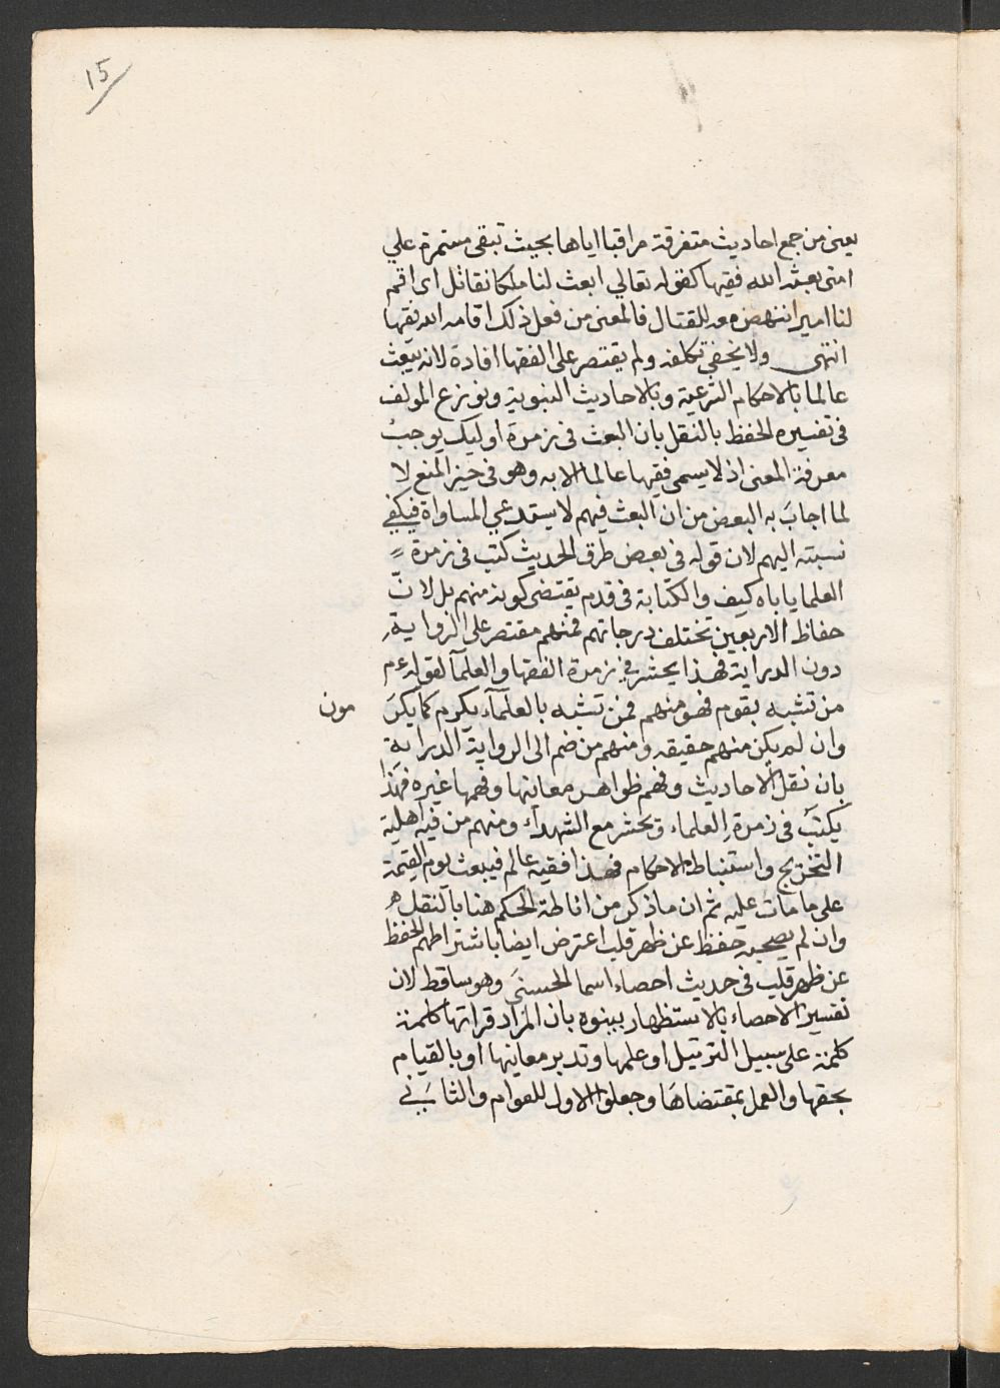 15
يعنى من جمع احاديث متفرقة مراقبا اياها بحيث تبقى مستمرة علي
امتى بعثه الله فقيها كقوله تعالي ابعث لنا ملكا نقاتل اى اقم
لنا اميرا ننهض معه للقتال فالمعنى من فعل ذلك اقامه الله فقيها
انتهى ولا يخفي تكلفه ولم يقتصر على الفقها افادة لانه يبعث
عالما بالاحكام الشرعية وبالاحاديث النبوية ونوزع المولف
فى تفسيره الحفظ بالنقل بان البعث فى زمرة اوليك يوجب
معرفة المعنى اذ لا يسمى فقيها عالما الا به وهو فى حيز المنع لا
لما اجاب به البعض من ان البعث فيهم لا يستدعي المساواة فيكفي
نسبته اليهم لان قوله فى بعض طرق الحديث كتب فى زمرة
العلما ياباه كيف والكتابة فى قدم يقتضى كونه منهم بل لانّ
حفاظ الاربعين تختلف درجاتهم فمنهم مقتصر على الرواية
دون الدراية فهذا يحشر في زمرة الفقها والعلمآ لقوله عم
من تشبه بقوم فهو منهم فمن تشبه بالعلمآء يكرم كما يكرَ مون
وان لم يكن منهم حقيقه ومنهم من ضم الى الرواية الدراية
بان نقل الاحاديث وفهم ظواهر معانيها وفهمها غيره فهذا
يكتب فى زمرة العلماء ويحشر مع الشهدآء ومنهم من فيه اهلية
التخريج واستنباط الاحكام فهذا فقيه عالم فيبعث يوم القيمة
على ما مات عليه ثم ان ما ذكر من اناطة الحكم هنا بالنقل
وان لم يصحبه حفظ عن ظهر قلب اعترض ايضا باشتراطهم الحفظ
عن ظهر قلب فى حديث احصاء اسما الحسنى وهو ساقط لان
تفسير الاحصاء بالاستظهار بينوه بان المراد قراتها كلمة
كلمة على سبيل الترتيل او علمها وتدبر معانيها او بالقيام
بحقها والعمل بمقتضاها وجعلوا الاول للعوام والثاني